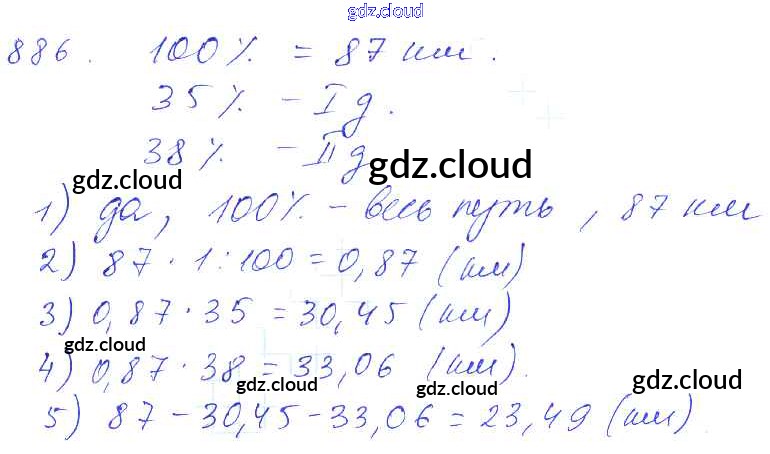 gdz.cloud
886. 100% = 87 км.
35% - I д.
38% - II д
gdz.cloud
gdz.cloud
1) да, 100% - весь путь, 87 км
2) 87 · 1 : 100 = 0,87 (км)
3) 0,87 · 35 = 30,45 (км)
gdz.cloud
4) 0,87 · 38 = 33,06 (км).
gdz.cloud
gdz.cloud
5) 87 - 30,45 - 33,06 = 23,49 (км)